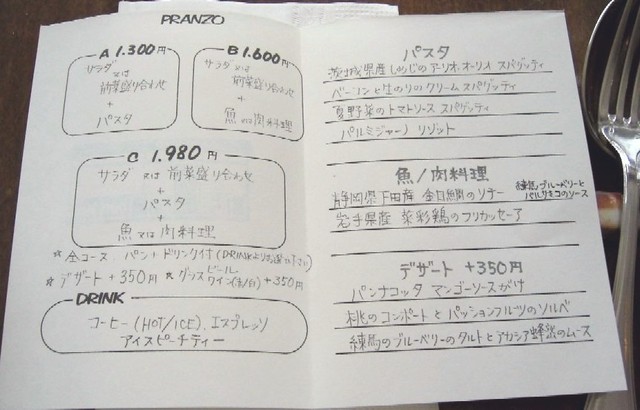 PRANZO
A 1.300円
サラダ
又は
前菜盛り合わせ
+
パスタ
B 1.600円
サラダ 又は
前菜盛り合わせ
+
魚 or 肉料理
C 1.980円
サラダ 又は 前菜盛り合わせ
+
パスタ
+
魚 又は 肉料理
☆ 全コース パン・ドリンク付(DRINKよりお選び下さい)
☆ デザート +350円 ☆ グラス ビール ワイン(赤/白) +350円
DRINK
コーヒー (HOT/ICE)、エスプレッソ
アイスピーチティー
パスタ
茨城県産しめじのアーリオ、オーリオ スパゲッティ
ベーコンと生のりのクリームスパゲッティ
夏野菜のトマトソース スパゲッティ
パルミジャーノ リゾット
魚/肉料理
静岡県下田産 金目鯛のソテー 練馬ブルーベリーと
バルサミコのソース
岩手県産 菜彩鶏のフリカッセーア
デザート +350円
パンナコッタ マンゴーソースがけ
桃のコンポートとパッションフルーツのソルベ
練馬のブルーベリーのタルトとアカシア蜂蜜のムース